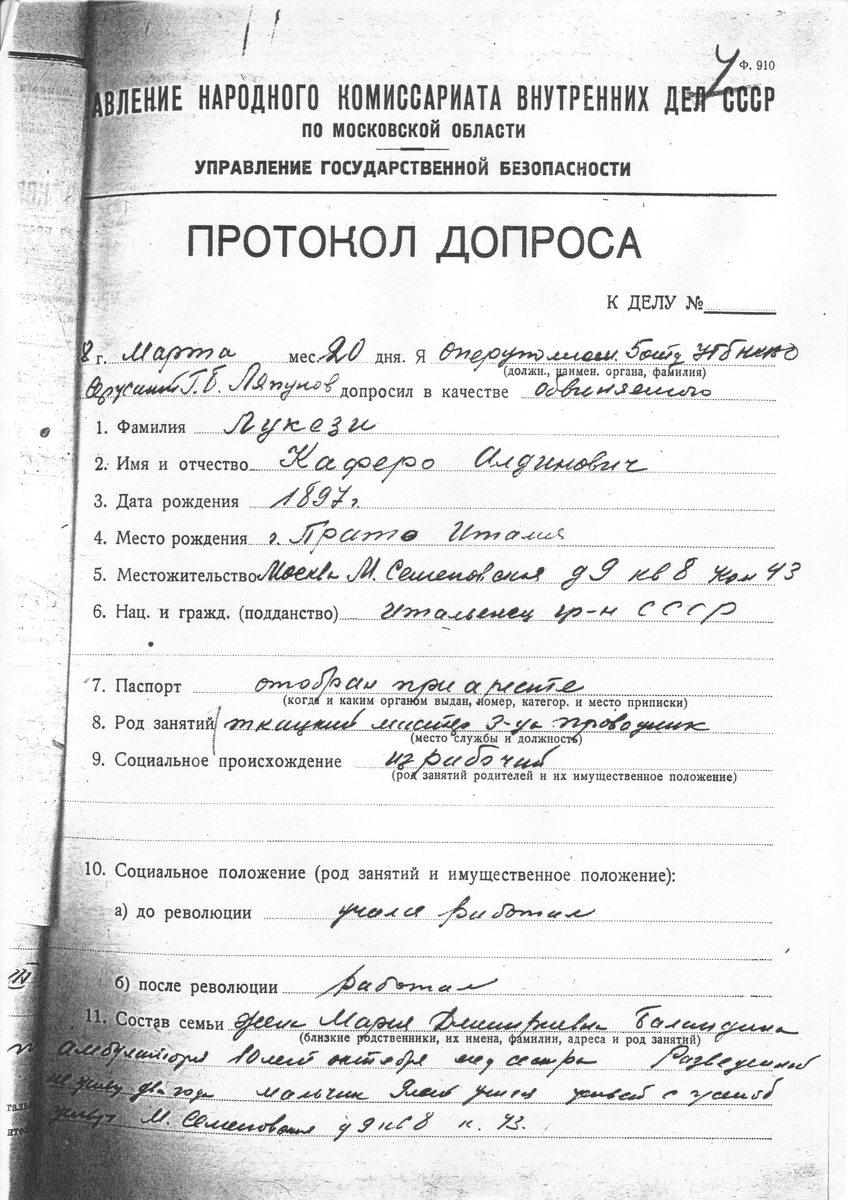 Ф. 910
АВЛЕНИЕ НАРОДНОГО КОМИССАРИАТА ВНУТРЕННИХ ДЕЛ СССР
ПО МОСКОВСКОЙ ОБЛАСТИ
УПРАВЛЕНИЕ ГОСУДАРСТВЕННОЙ БЕЗОПАСНОСТИ
ПРОТОКОЛ ДОПРОСА
К ДЕЛУ №
8 г. Марта мес. 20 дня. Я оперуполном.
(должн., наимен. органа, фамилия)
Сержант Г.Б. Ляпунов допросил в качестве обвиняемого
1. Фамилия Лукези
2. Имя и отчество Каферо Алдинович
3. Дата рождения 1897 г.
4. Место рождения г. Прато Италия
5. Местожительство Москва М. Семеновская д 9 кв 8 ком 43
6. Нац. и гражд. (подданство) Итальенец гр-н СССР
7. Паспорт отобран при аресте
(когда и каким органом выдан, номер, категор. и место приписки)
8. Род занятий ткацкий мастер з-да проводник
(место службы и должность)
9. Социальное происхождение из рабочий
(род занятий родителей и их имущественное положение)
10. Социальное положение (род занятий и имущественное положение):
а) до революции учился работал
б) после революции работал
11. Состав семьи жена Мария Дмитриевна Баландина
(близкие родственники, их имена, фамилии, адреса и род занятий)
Амбулатория 10 лет октября мед сестра Разведенной
не живу два года мальчик учится с женой
живут М. Семеновская д 9 кв 8 к. 43.